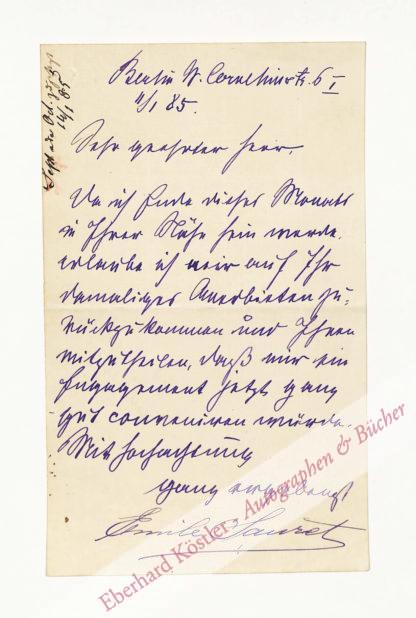 Berlin W. Corneliusstr. 6 I
11/1 85.
Sehr geehrter Herr,
Da ich Ende dieses Monats
in Ihrer Nähe sein werde,
erlaube ich mir auf Ihr
damaliges Anerbieten zu-
rückzukommen und Ihnen
mitzutheilen, daß mir ein
Engagement jetzt ganz
gut conveniren würde.
Mit Hochachtung
ganz ergebenst
Emile Sauret
14/1 85
Eberhard Köstler Autographen & Bücher